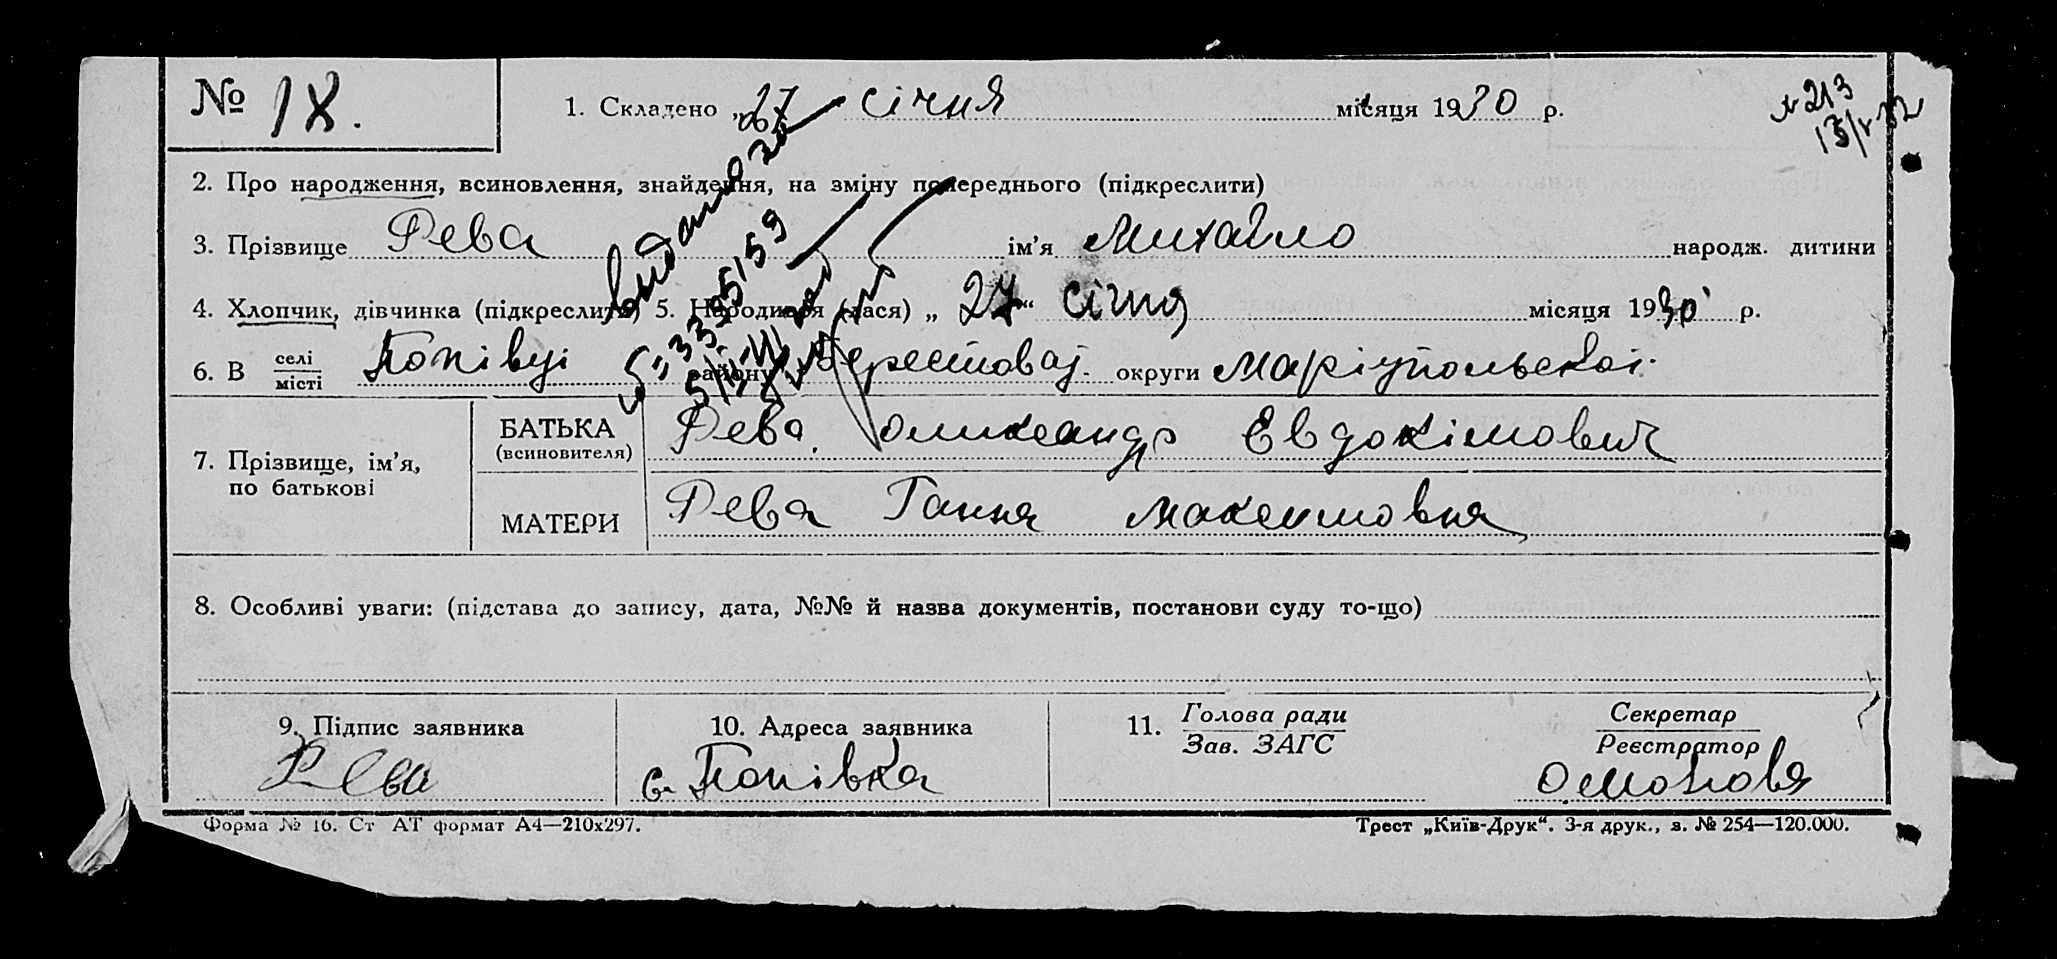 № 18. 1. Складено „27 січня місяця 1930 р.
№ 213
2. Про народження, всиновлення, знайдення, на зміну попереднього (підкреслити)
3. Прізвище Рева ім’я Михайло народж. дитини
4. Хлопчик, дівчинка (підкреслити) 5. Народився (лася) „ 27 “ січня місяця 1930 р.
6. В селі/місті Попівці району Берестовať округи Маріупольської
7. Прізвище, ім’я, по батькові
БАТЬКА (всиновителя) Рева Олександр Евдокімович
МАТЕРИ Рева Ганна Максимовна
8. Особливі уваги: (підстава до запису, дата, №№ й назва документів, постанови суду то-що)
9. Підпис заявника 10. Адреса заявника 11. Голова ради Секретар
Зав. ЗАГС Реєстратор
Рева с. Попівка
Форма № 16. Ст АТ формат А4—210х297. Трест „Київ-Друк“. 3-я друк., з. № 254—120.000.